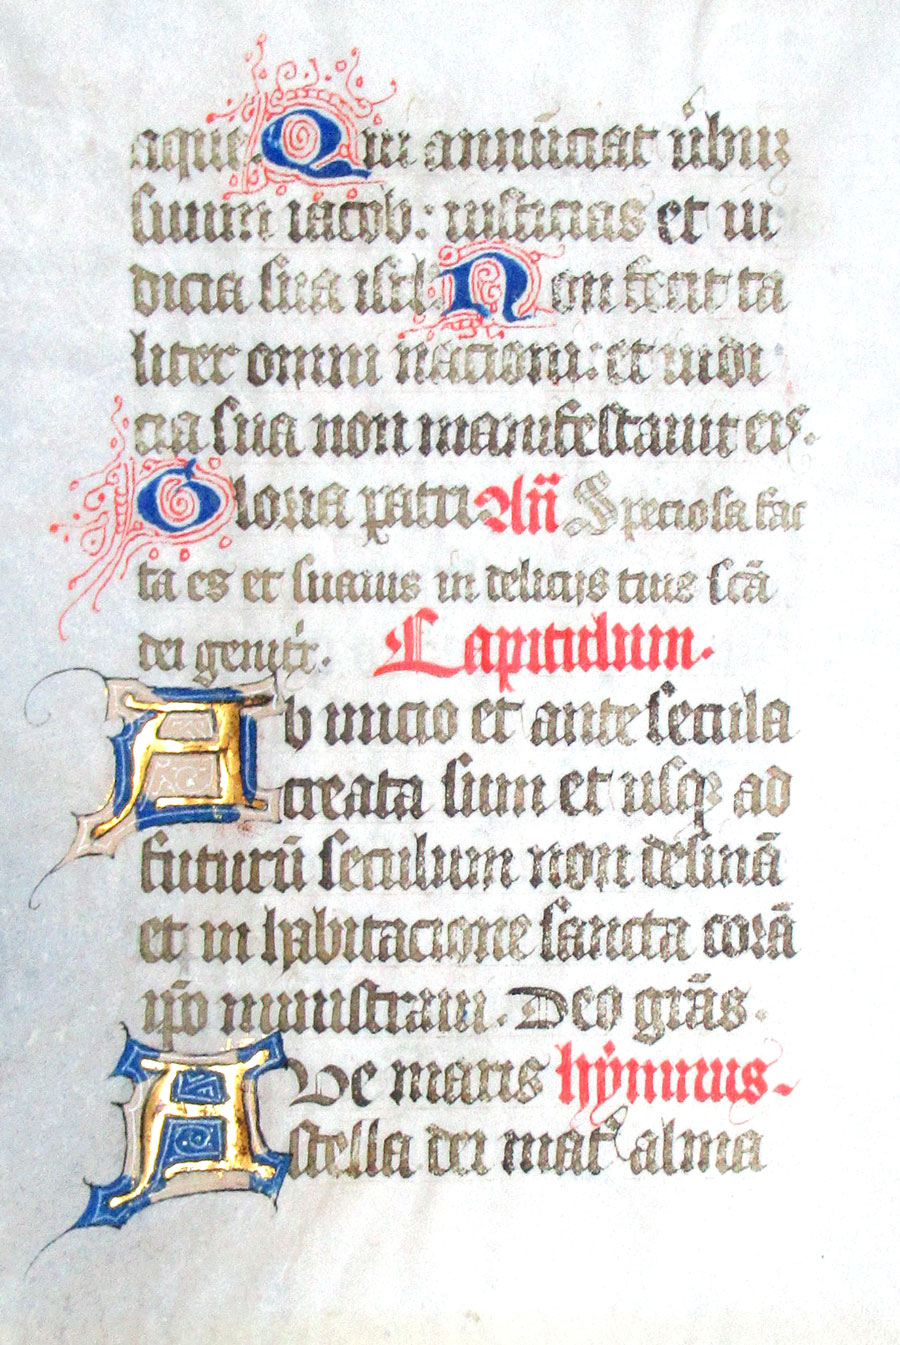 aque Qui annūciat ūbuȝ
suum iacob: iusticias et iu
dicia sua isrl Non fecit ta
liter omni nacioni: et iudi
cia sua non manifestauit eis.
Gloria patri An̄ Speciosa fac
ta es et suauis in delicijs tuis scā
dei genitˢ.  Capitulum.
Ab inicio et ante secula
creata sum et usqȝ ad
futurū seculum non desinā
et in habitacione sancta corā
ip̄o ministraui. Deo grās.
Ave maris hẏmnus-
stella dei mat̓ alma